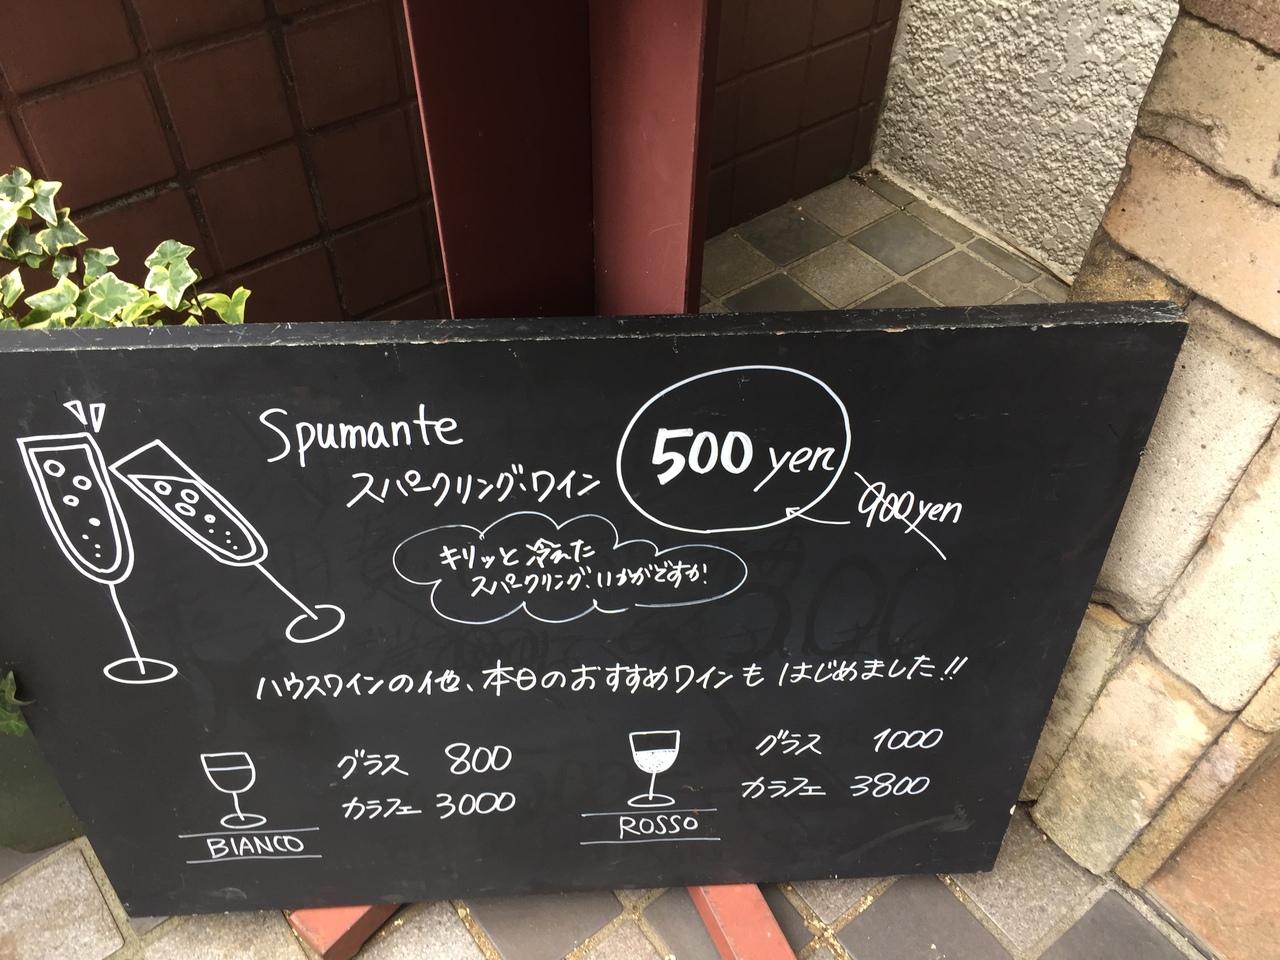 Spumante
スパークリング・ワイン
500 yen
900 yen
キリッと冷えた
スパークリング、いかがですか!
ハウスワインの他、本日のおすすめワインも はじめました!!
グラス 800
カラフェ 3000
BIANCO
グラス 1000
カラフェ 3800
ROSSO